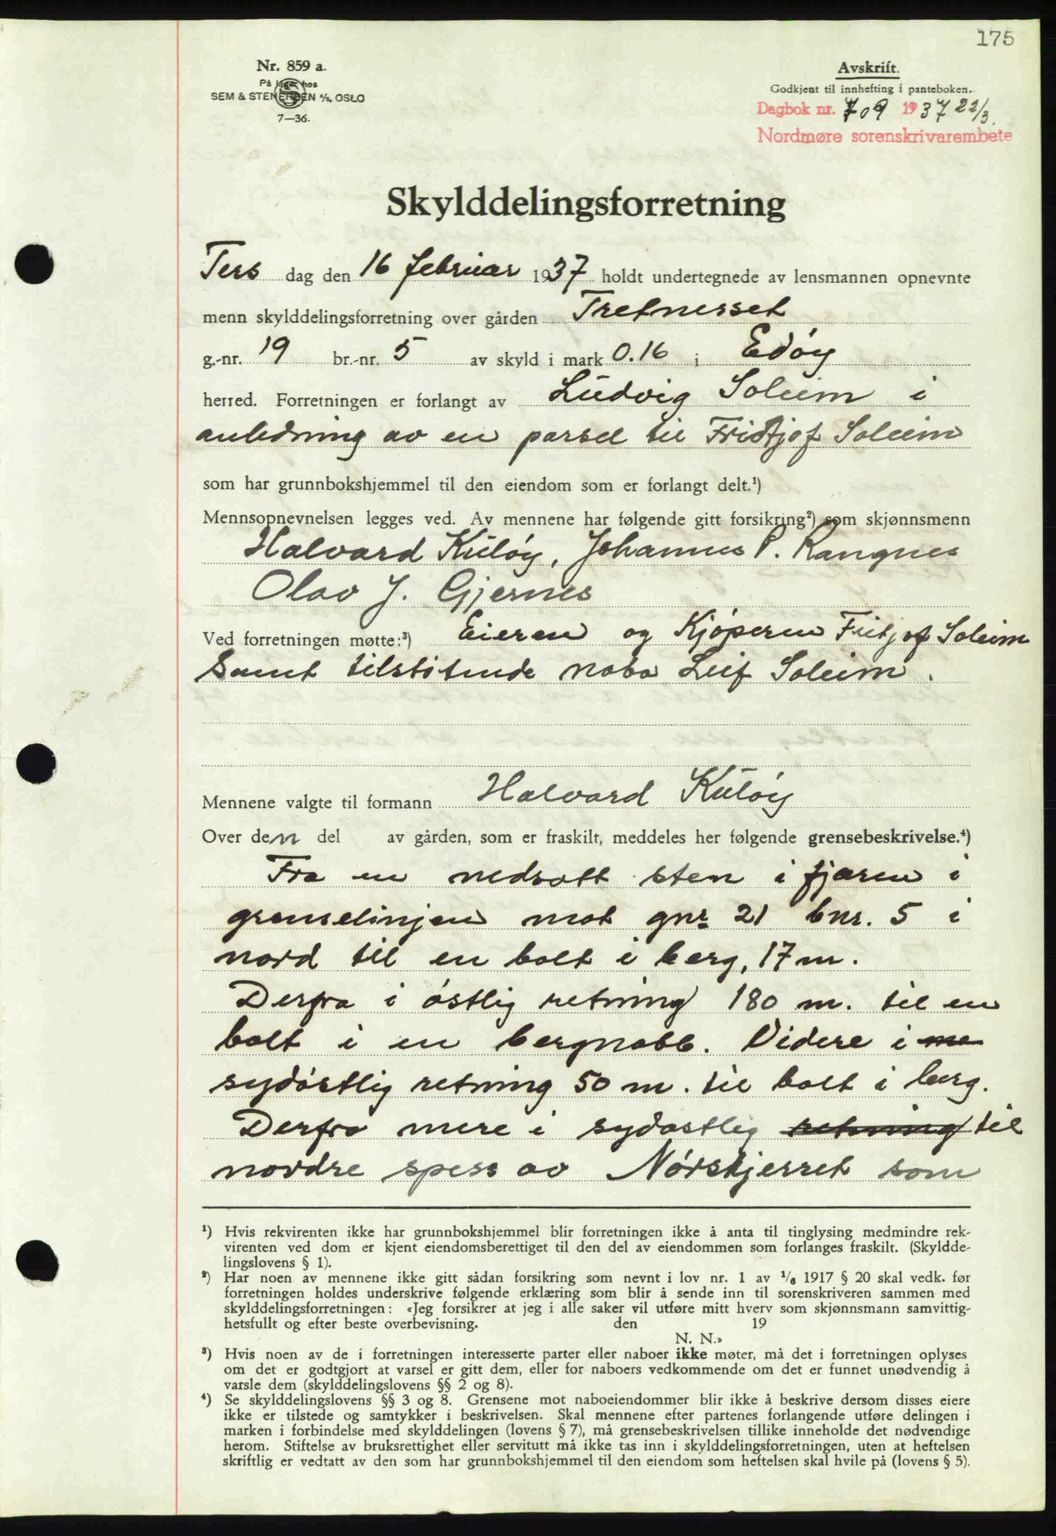 175
Nr. 859 a.
På lager hos
SEM & STENERSEN A/S, OSLO
7—36.
Avskrift.
Godkjent til innhefting i panteboken.
Dagbok nr. 709 1937 22/3.
Nordmøre sorenskrivarembete
Skylddelingsforretning
Tirs dag den 16 februar 1937 holdt undertegnede av lensmannen opnevnte
menn skylddelingsforretning over gården Tretnesset
g.-nr. 19 br.-nr. 5 av skyld i mark 0.16 i Edøy
herred. Forretningen er forlangt av Ludvig Soleim i
anledning av en parsel til Fridtjof Soleim
som har grunnbokshjemmel til den eiendom som er forlangt delt.¹)
Mennsopnevnelsen legges ved. Av mennene har følgende gitt forsikring²) som skjønnsmenn
Halvard Kuløy, Johannes P. Rangnes
Olav J. Gjernes
Ved forretningen møtte:³) Eieren og Kjøperen Fritjof Soleim
Samt tilstøtende nabo Leif Soleim.
Mennene valgte til formann Halvard Kuløy
Over den del av gården, som er fraskilt, meddeles her følgende grensebeskrivelse.⁴)
Fra en nedsatt sten i fjæren i
grenselinjen mot gnr 21 bnr. 5 i
nord til en bolt i berg, 17 m.
Derfra i østlig retning 180 m. til en
bolt i en bergnabb. Videre i
sydøstlig retning 50 m. til bolt i berg.
Derfra mere i sydøstlig retning til
nordre spiss av Nørskjerret som
¹) Hvis rekvirenten ikke har grunnbokshjemmel blir forretningen ikke å anta til tinglysing medmindre rek-
virenten ved dom er kjent eiendomsberettiget til den del av eiendommen som forlanges fraskilt. (Skyldde-
lingslovens § 1).
²) Har noen av mennene ikke gitt sådan forsikring som nevnt i lov nr. 1 av 1/6 1917 § 20 skal vedk. før
forretningen holdes underskrive følgende erklæring som blir å sende inn til sorenskriveren sammen med
skylddelingsforretningen: «Jeg forsikrer at jeg i alle saker vil utføre mitt hverv som skjønnsmann samvittig-
hetsfullt og efter beste overbevisning. den 19
N. N.»
³) Hvis noen av de i forretningen interesserte parter eller naboer ikke møter, må det i forretningen oplyses
om det er godtgjort at varsel er gitt dem, eller for naboers vedkommende om det er funnet unødvendig å
varsle dem (skylddelingslovens §§ 2 og 8).
⁴) Se skylddelingslovens §§ 3 og 8. Grensene mot naboeiendommer blir ikke å beskrive dersom disses eiere
ikke er tilstede og samtykker i beskrivelsen. Skal mennene efter partenes forlangende utføre delingen i
marken i forbindelse med skylddelingen (lovens § 7), må grensebeskrivelsen tillike inneholde det nødvendige
herom. Stiftelse av bruksrettighet eller servitutt må ikke tas inn i skylddelingsforretningen, uten at heftelsen
skriftlig er vedtatt av den som har grunnbokshjemmel til den eiendom som heftelsen skal hvile på (lovens § 5).